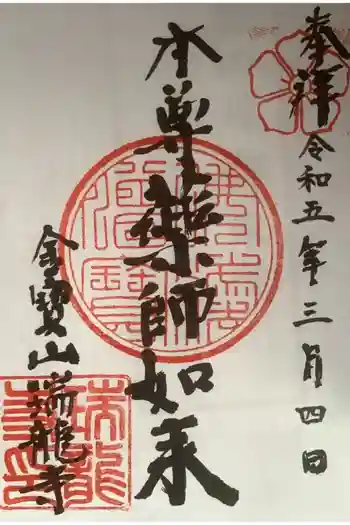 奉拝
令和五年三月四日
本尊薬師如来
金寳山瑞龍寺